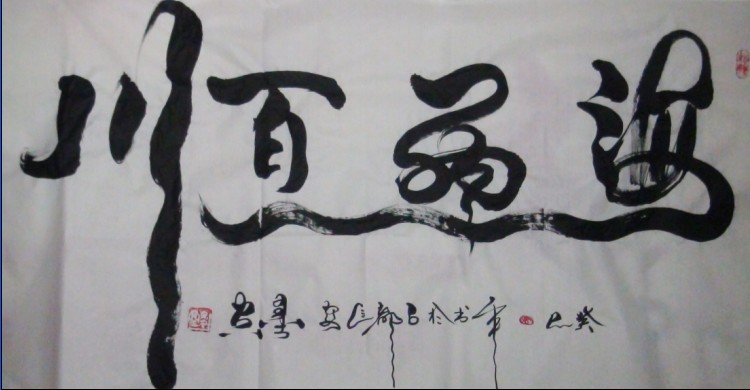 海納百川
癸巳年书於古都长安